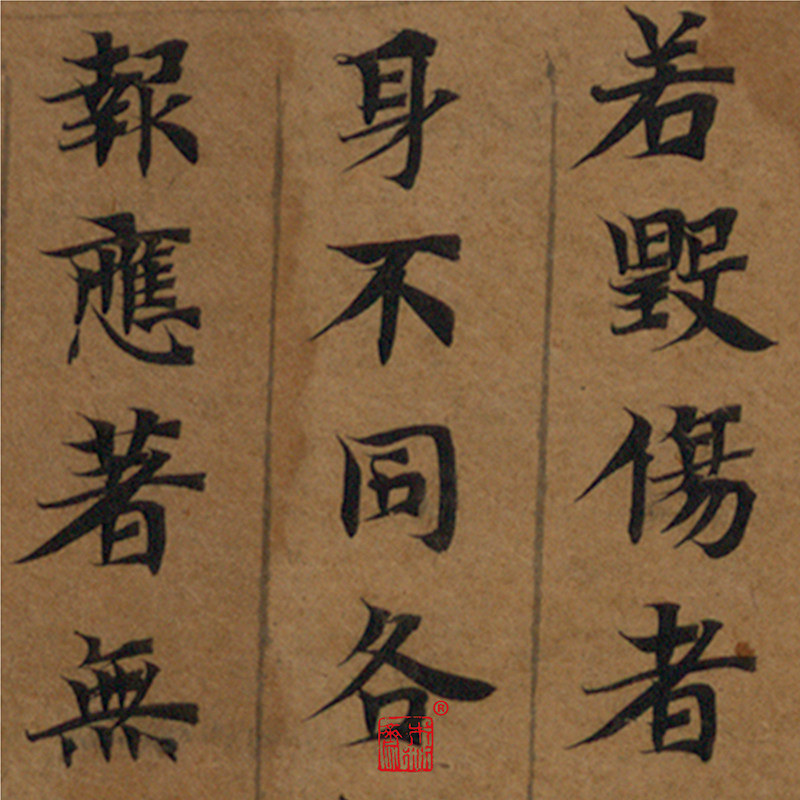 若毀傷者
身不同各
報應著無